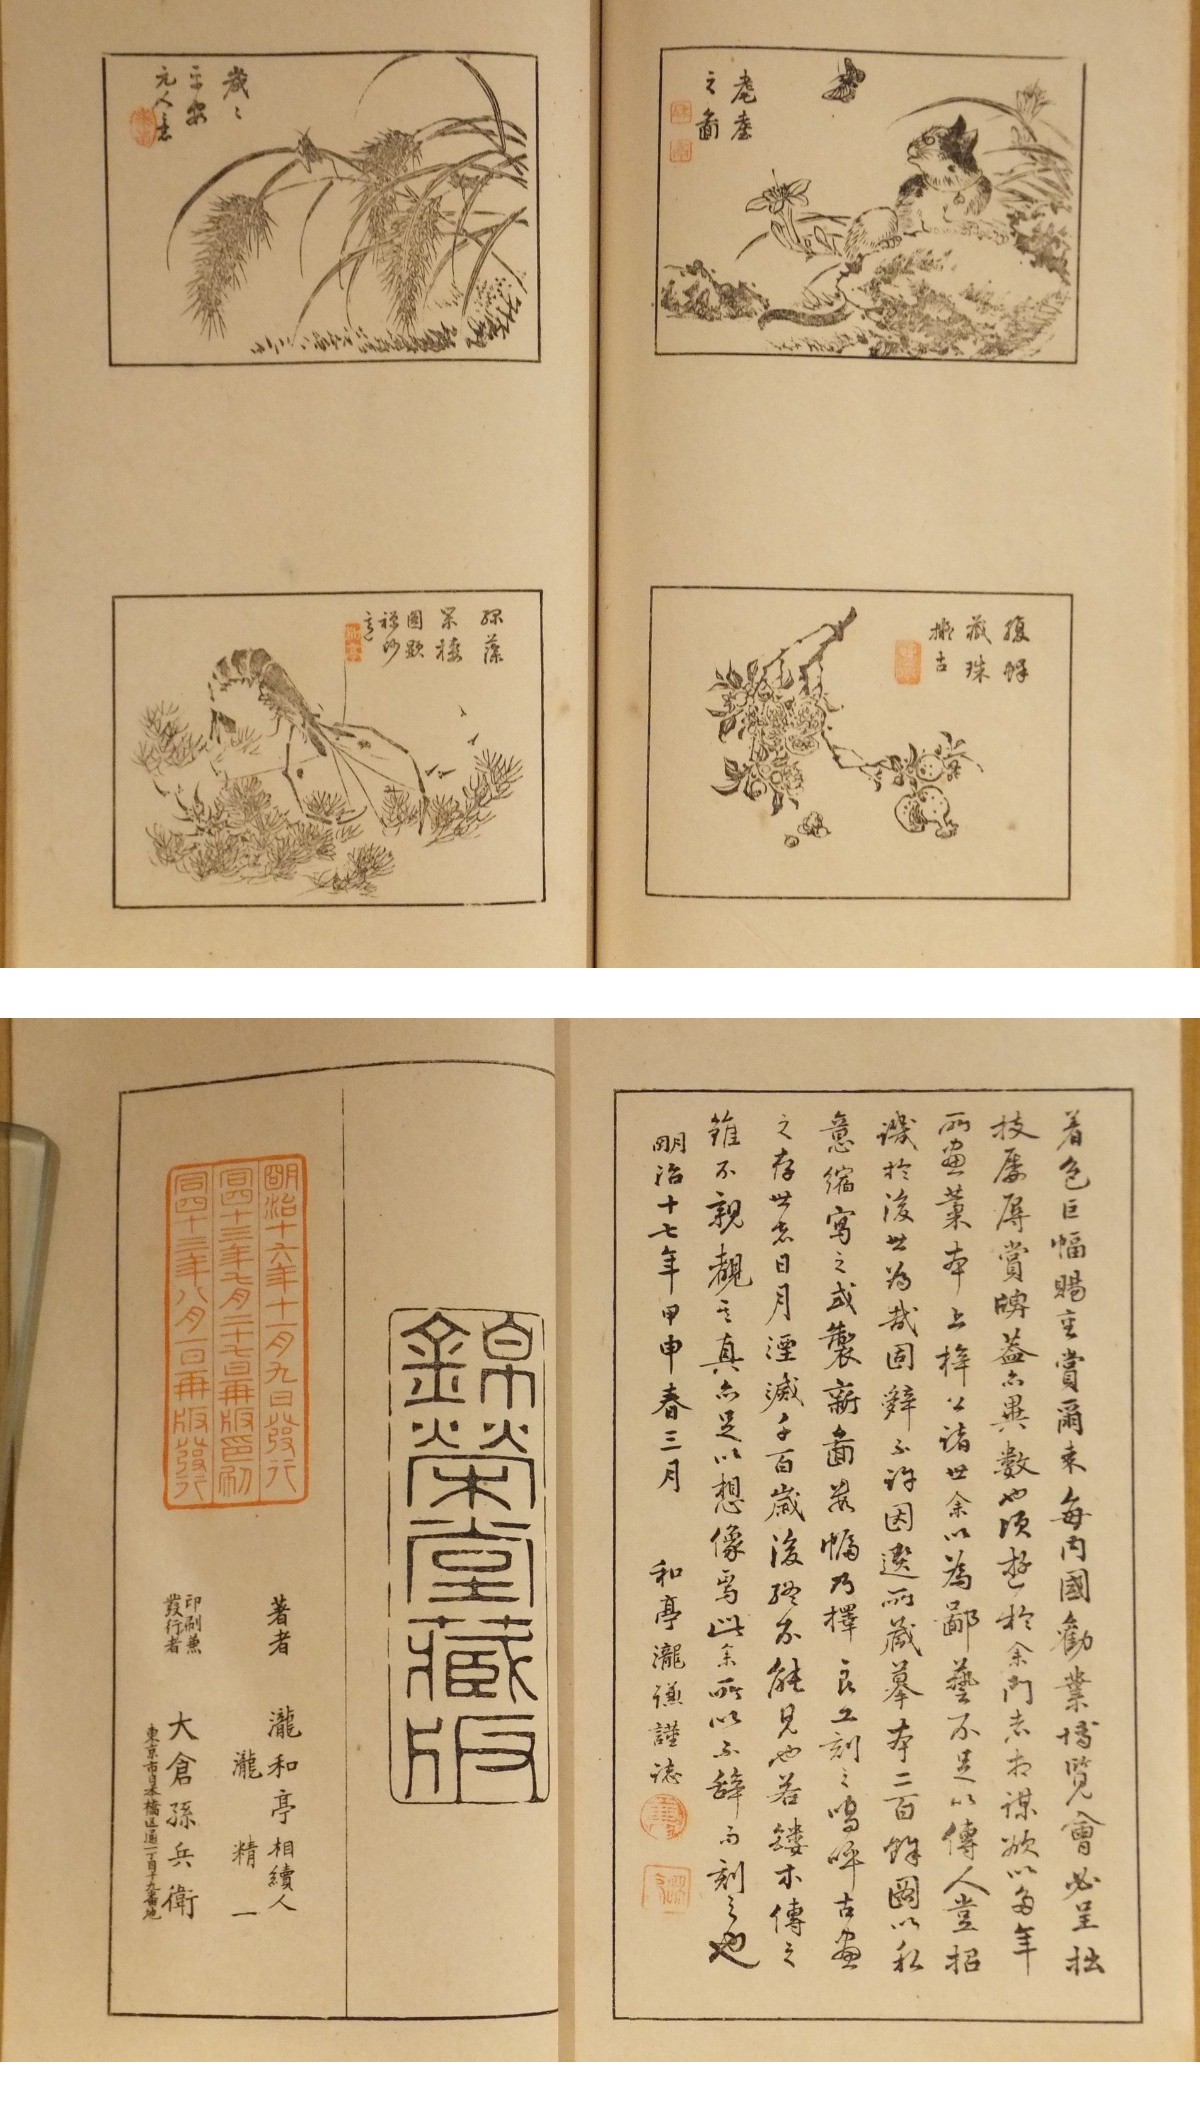 耄耋
之圖
歲々
平安
元人意
腹
藏珠
擬古
藻
圖
着色巨幅賜重賞爾來每内國勸業博覽會必呈拙
技屢辱賞牌蓋亦異數也頃遊於余門者相謀欲以多年
所畫藁本上梓公諸世余以為鄙藝不足以傳人豈招
譏於後世為哉固辭不許因選所藏摹本二百餘圖以私
意縮寫之或製新圖若幅乃擇良工刻之嗚呼古畫
之存世者日月湮滅千百歲後終不能見也若鏤木傳之
雖不親覩其真亦足以想像焉此余所以不辭而刻之也
明治十七年甲申春三月 和亭瀧謙謹誌
錦榮堂藏版
明治十六年十一月九日發行
同四十三年七月二十七日再版印刷
同四十三年八月一日再版發行
著者 瀧和亭相續人
瀧精一
印刷兼
發行者 大倉孫兵衛
東京市日本橋區通一丁目十九番地